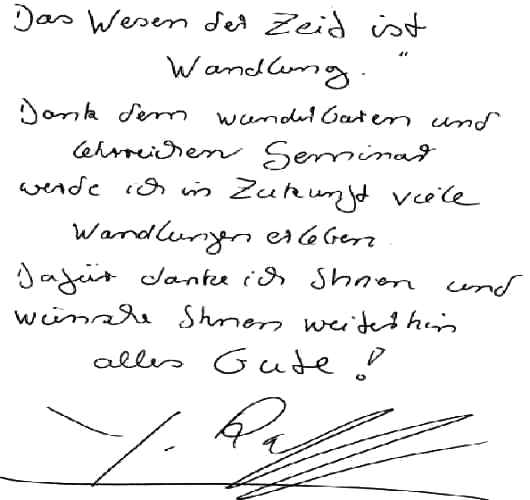 Das Wesen der Zeit ist
Wandlung."
Dank dem wunderbaren und
lehrreichen Seminar
werde ich in Zukunft viele
Wandlungen erleben
Dafür danke ich Ihnen und
wünsche Ihnen weiterhin
alles Gute!